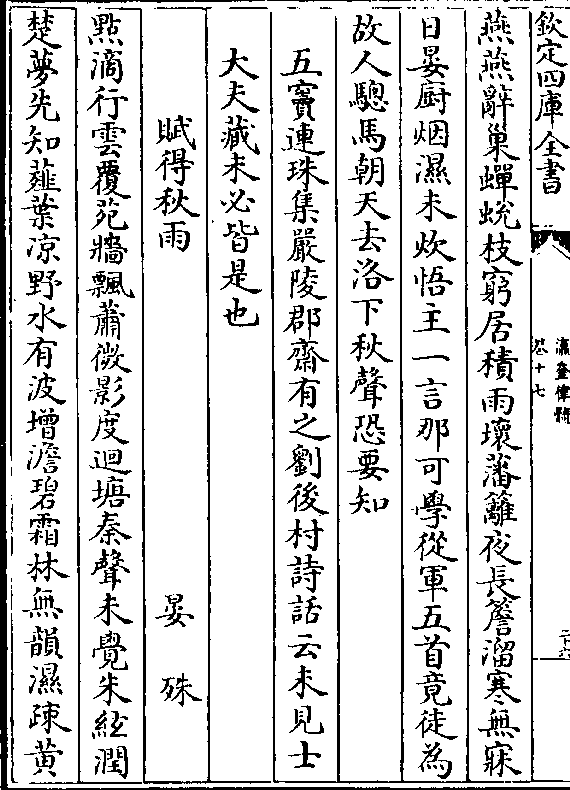 欽定四庫全書
瀛奎律髓
卷十七
二十六
燕燕辭巢蟬蛻枝窮居積雨壞藩籬夜長簷溜寒無寐
日晏厨烟濕未炊悟主一言那可學從軍五首竟徒為
故人驄馬朝天去洛下秋聲恐要知
五竇連珠集嚴陵郡齋有之劉後村詩話云未見士
大夫藏未必皆是也
賦得秋雨　晏殊
點滴行雲覆苑牆飄蕭微影度迴塘秦聲未覺朱絃潤
楚夢先知薤葉凉野水有波增澹碧霜林無韻濕疎黄